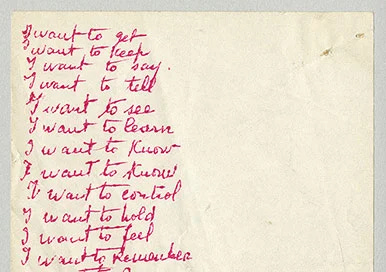 I want to get
I want to keep
I want to say.
I want to tell
I want to see
I want to learn
I want to Know
I want to Know
I want to control
I want to hold
I want to feel
I want to Remember